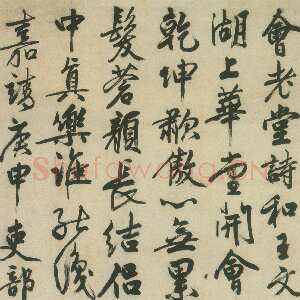 會老堂詩和王文
湖上華堂開會
乾坤傲心無累
髮蒼顏長結侶
中眞樂誰能識
嘉靖庚申吏部